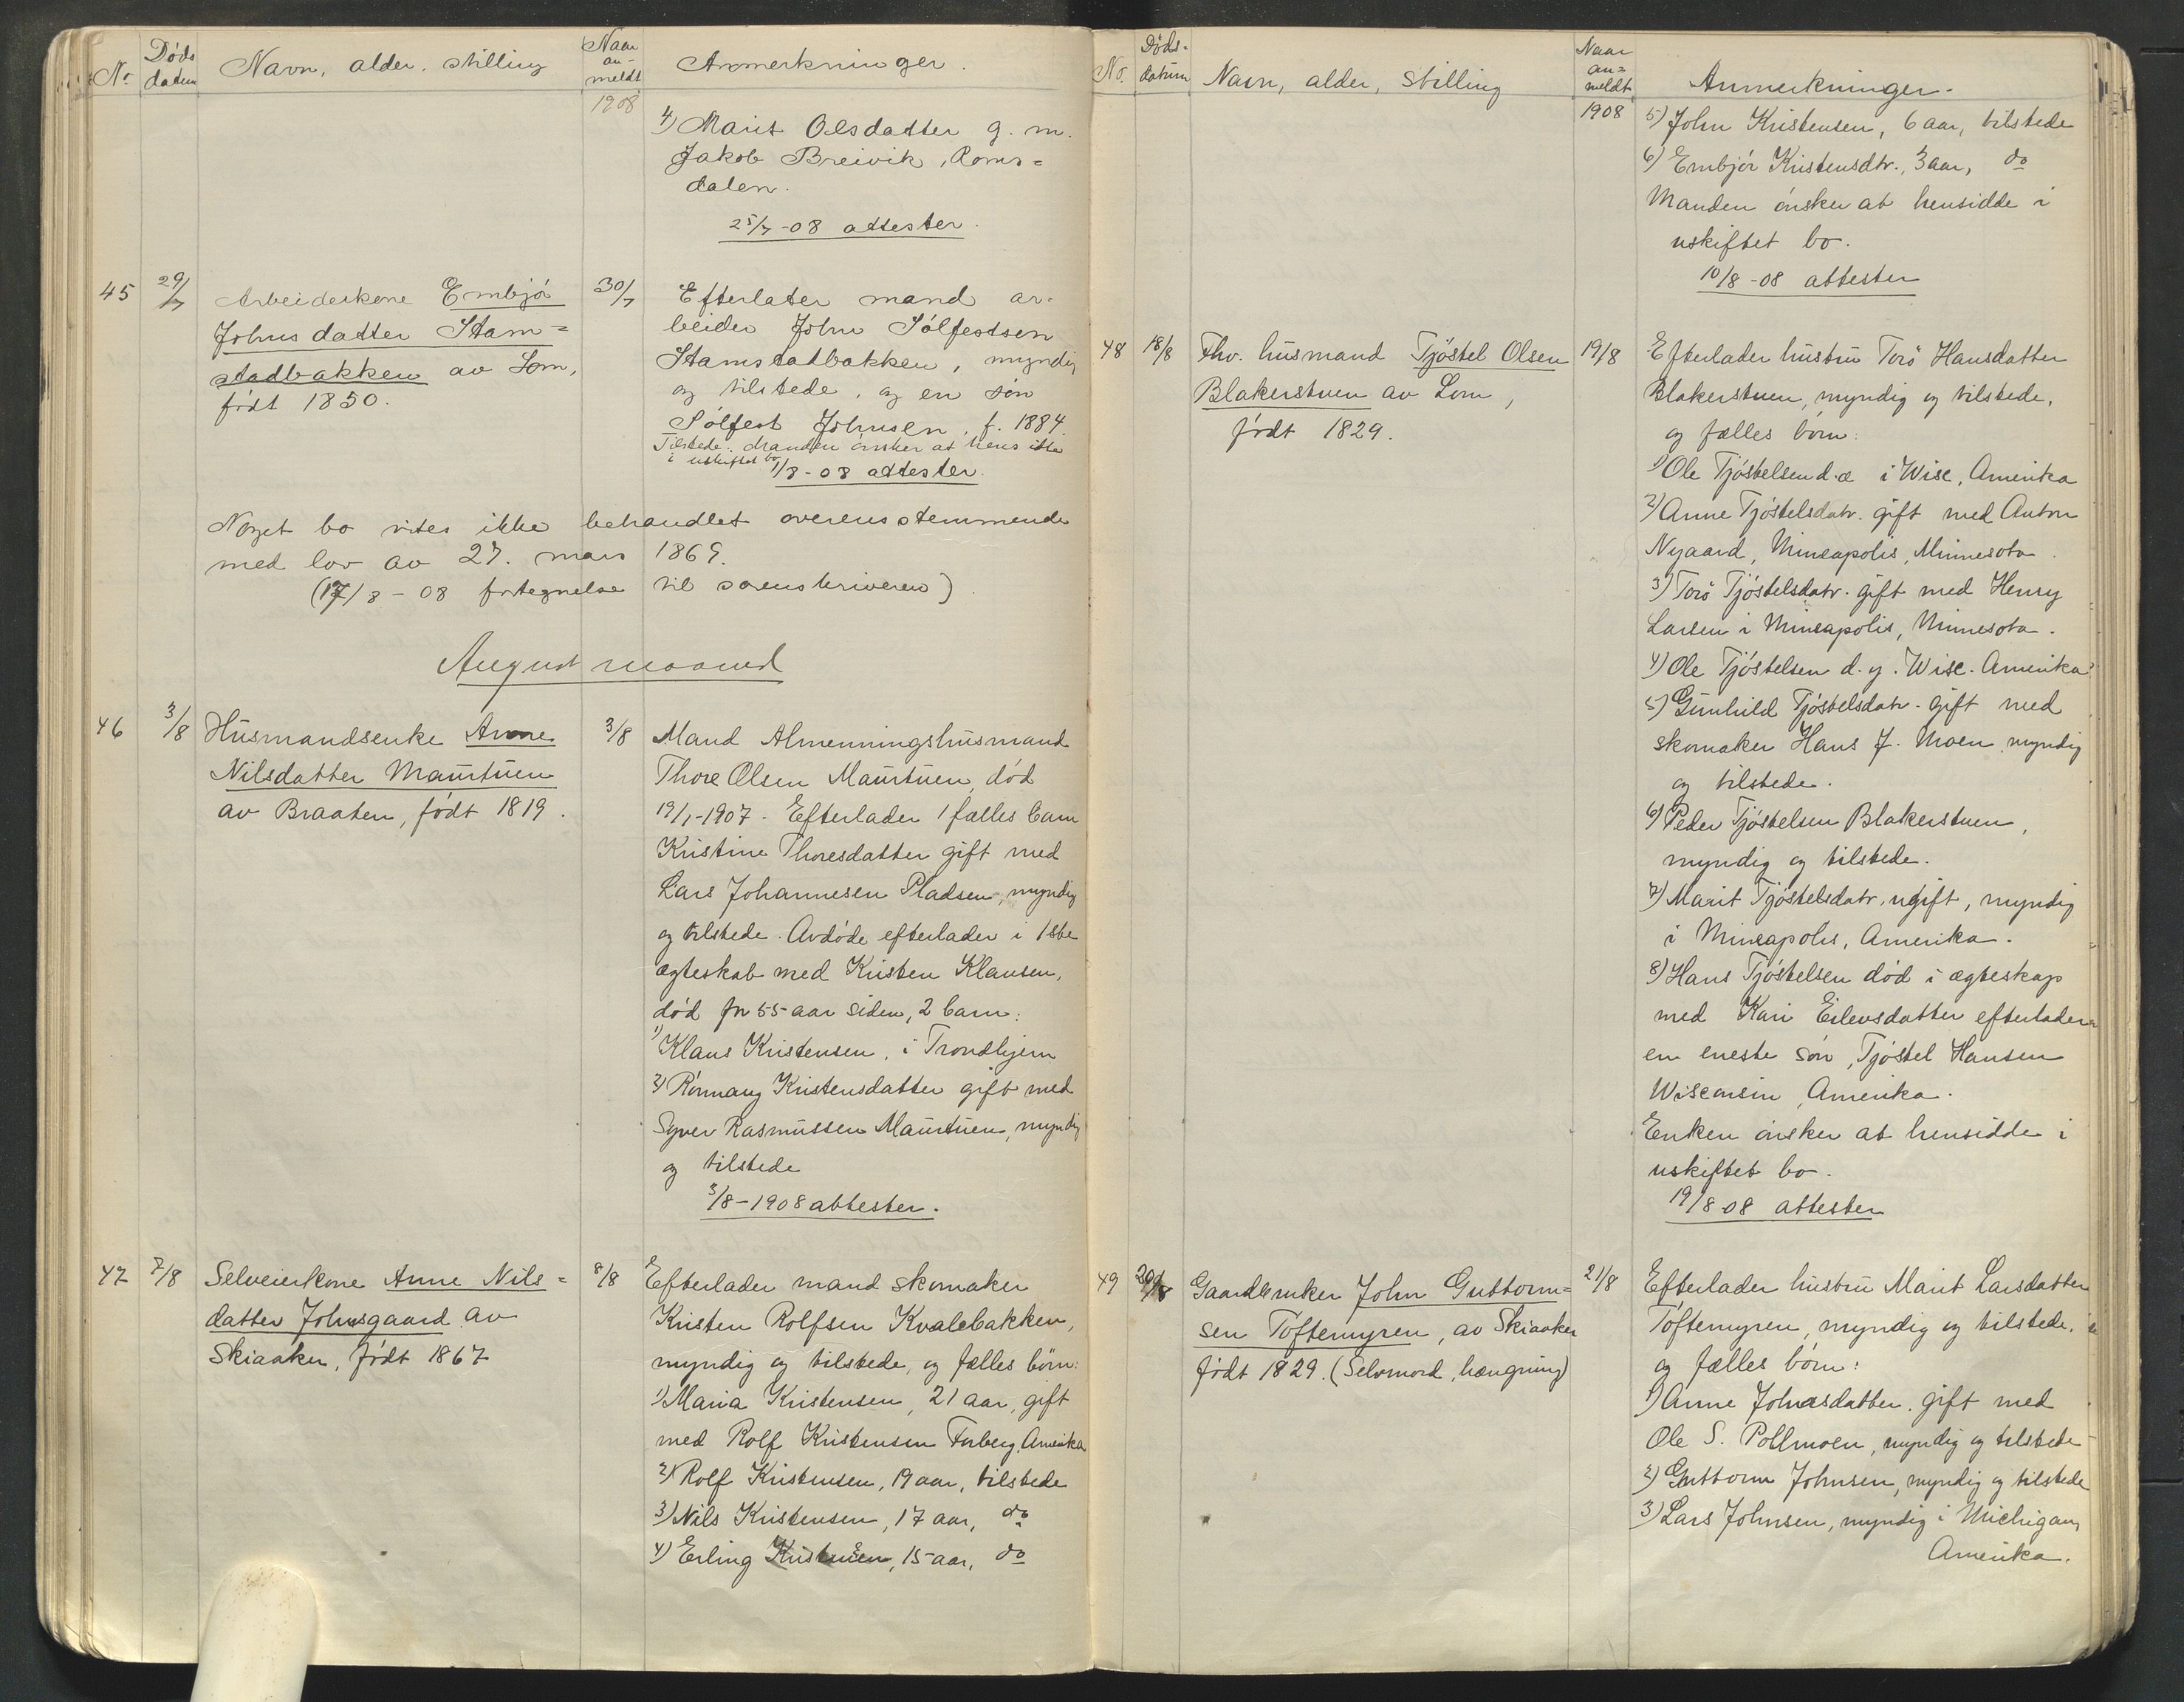 No. Døds datum Navn, alder, stilling Naar an- meldt Anmerkninger.
1908
4) Marit Olsdatter g. m.
Jakob Breivik, Roms=
dalen.
25/7 -08 attester.
45 29/7 Arbeiderkone Embjør
Johnsdatter Stam=
stadbakken av Lom,
født 1850.
30/7 Efterlater mand ar-
beider John Sølfestsen
Stamstadbakken, myndig
og tilstede, og en søn
Sølfest Johnsen, f. 1884.
Tilstede. Manden ønsker at hensitte
i uskiftet bo
1/8 - 08 attester.
Noget bo vites ikke behandlet overensstemmende
med lov av 27. mars 1869.
(17/8 - 08 fortegnelse til sorenskriveren)
August maaned
46 3/8 Husmandsenke Anne
Nilsdatter Maurtuen
av Braaten, født 1819.
3/8 Mand Almenningshusmand
Thore Olsen Maurtuen, død
19/1-1907. Efterlader 1 fælles barn
Kristine Thoresdatter gift med
Lars Johannesen Pladsen, myndig
og tilstede. Avdøde efterlader i 1ste
ægteskab med Kristen Klausen,
død for 55 aar siden, 2 barn:
1) Klaus Kristensen, i Trondhjem
2) Rønnaug Kristensdatter gift med
Syver Rasmussen Maurtuen, myndig
og tilstede
3/8 - 1908 attester.
47 7/8 Selveierkone Anne Nils=
datter Johnsgaard av
Skiaaker, født 1867
8/8 Efterlader mand skomaker
Kristen Rolfsen Kvalebakken,
myndig og tilstede, og fælles børn:
1) Maria Kristensen, 21 aar, gift
med Rolf Kristensen Forberg, Amerika
2) Rolf Kristensen, 19 aar, tilstede
3) Nils Kristensen, 17 aar, do
4) Erling Kristensen, 15 aar, do
No. Døds- datum Navn, alder, stilling Naar an= meldt Anmerkninger.
1908
5) John Kristensen, 6 aar, tilstede
6) Embjør Kristensdtr., 3 aar, do
Manden ønsker at hensidde i
uskiftet bo.
10/8 -08 attester
48 18/8 Fhv. husmand Tjøstel Olsen
Blakerstuen av Lom,
født 1829.
19/8 Efterlader hustru Torø Hansdatter
Blakerstuen, myndig og tilstede,
og fælles børn:
1) Ole Tjøstelsen d.æ i Wisc, Amerika
2) Anne Tjøstelsdatr. gift med Anton
Nyaard, Mineapolis, Minnesota.
3) Torø Tjøstelsdatr. gift med Henry
Larsen i Mineapolis, Minnesota.
4) Ole Tjøstelsen d. y. Wisc. Amerika
5) Gunhild Tjøstelsdatr. gift med
skomaker Hans J. Moen, myndig
og tilstede.
6) Peder Tjøstelsen Blakerstuen,
myndig og tilstede.
7) Marit Tjøstelsdatr, ugift, myndig
i Mineapolis, Amerika.
8) Hans Tjøstelsen død i ægteskap
med Kari Eilevsdatter efterlader
en eneste søn, Tjøstel Hansen
Wisconsin, Amerika.
Enken ønsker at hensidde i
uskiftet bo.
19/8 08 attester
49 20/8 Gaardbruker John Guttorm=
sen Toftemyren, av Skiaaker
født 1829. (Selvmord, hængning)
21/8 Efterlader hustru Marit Larsdatter
Toftemyren, myndig og tilstede,
og fælles børn:
1) Anne Johnsdatter, gift med
Ole S. Pollmoen, myndig og tilstede
2) Guttorm Johnsen, myndig og tilstede
3) Lars Johnsen, myndig i Michigan,
Amerika.